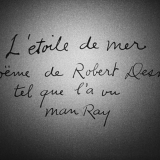 L'étoile de mer
oëme de Robert Desn
tel que l'a vu
man Ray